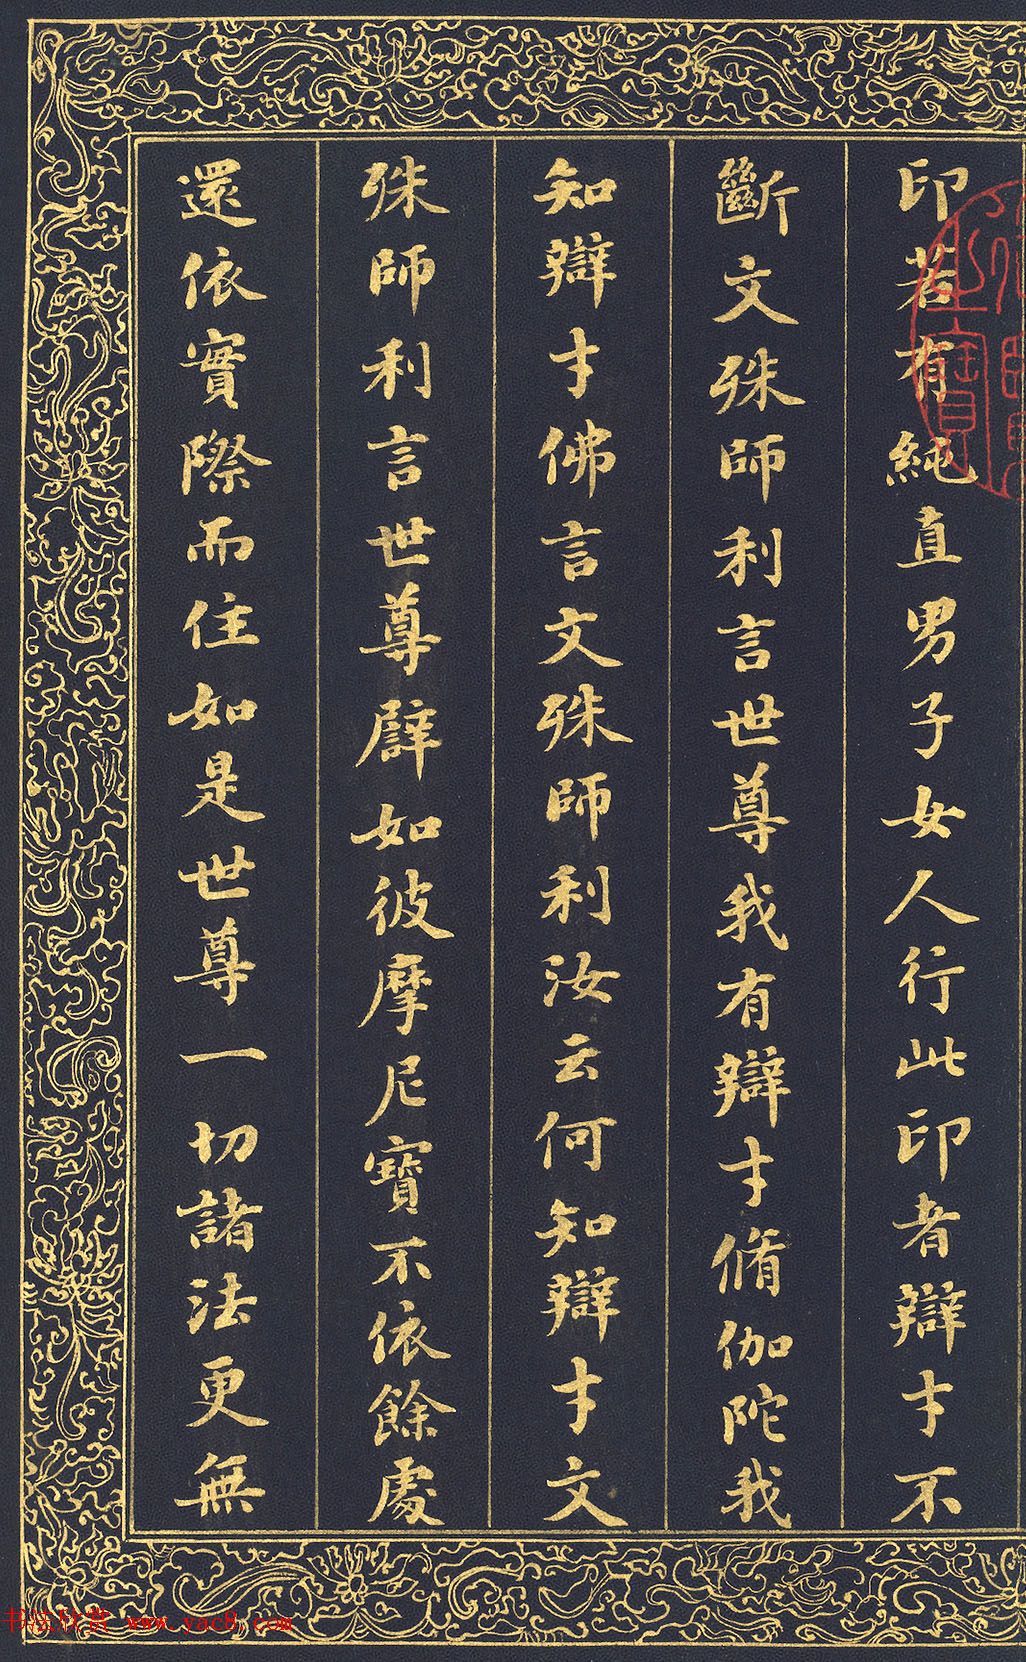 印若有純直男子女人行此印者辯才不
斷文殊師利言世尊我有辯才脩伽陀我
知辯才佛言文殊師利汝云何知辯才文
殊師利言世尊譬如彼摩尼寶不依餘處
還依實際而住如是世尊一切諸法更無
之寶
书法欣赏 www.yac8.com